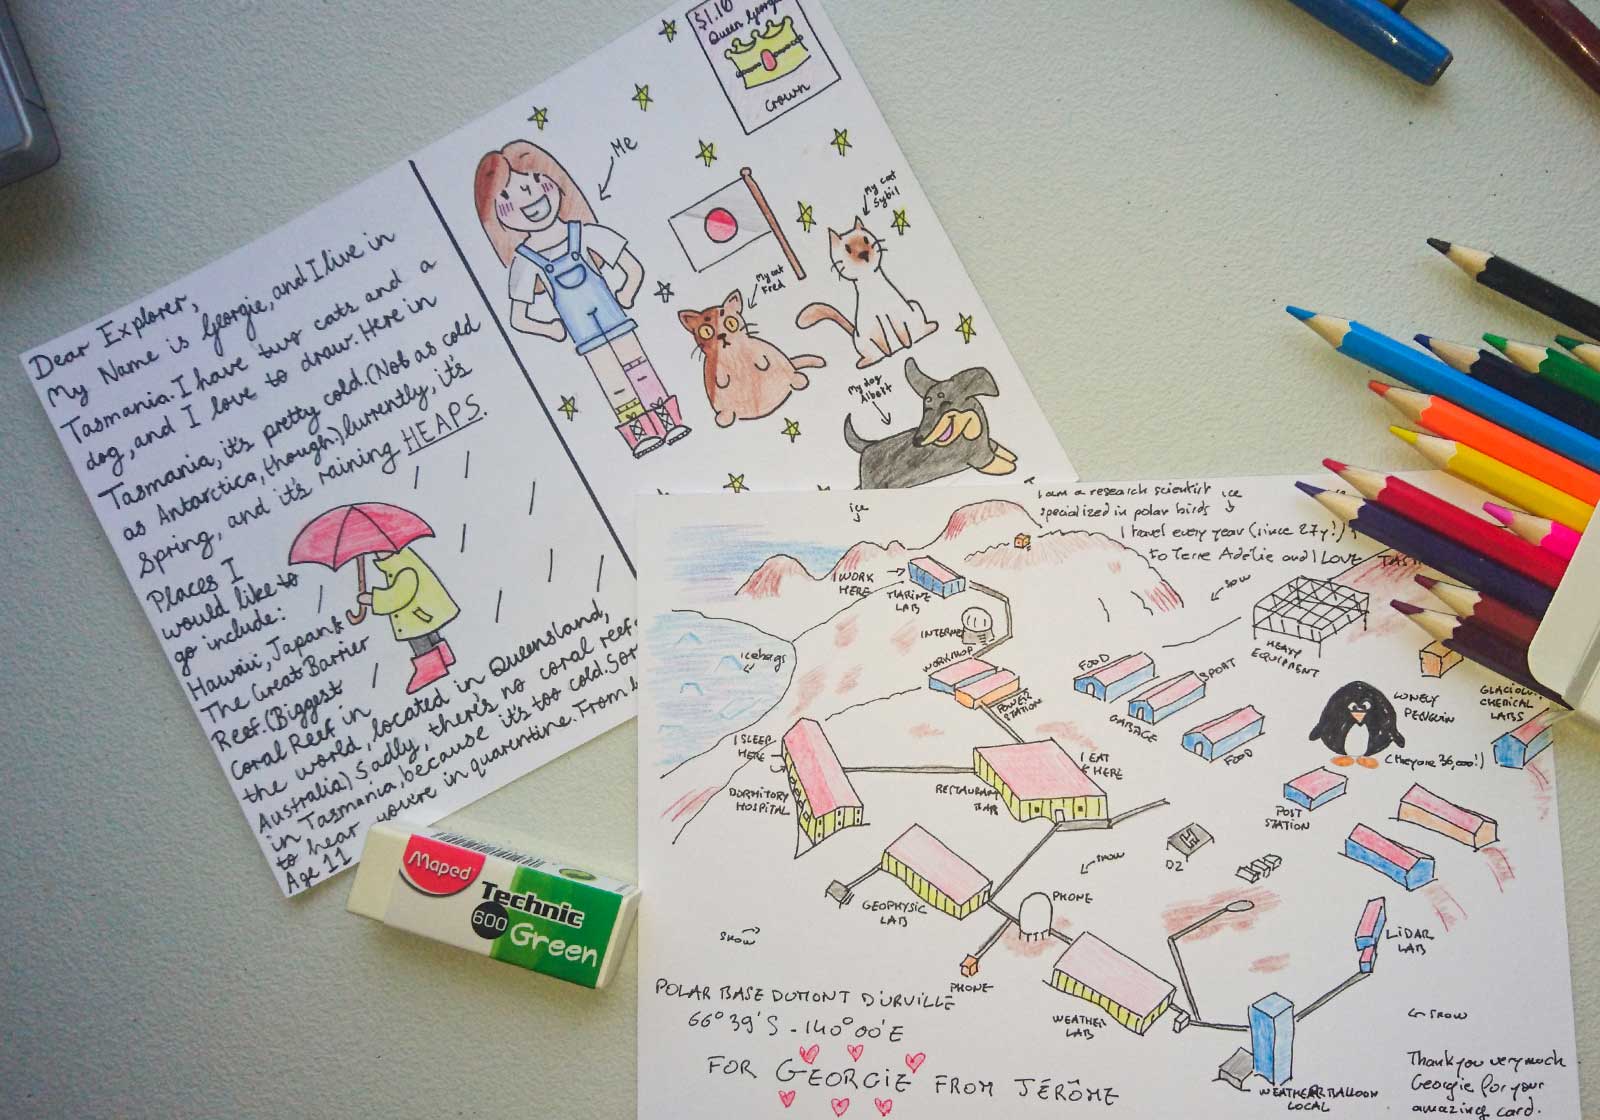 Dear Explorer,
My Name is Georgie, and I live in
Tasmania. I have two cats and a
dog, and I love to draw. Here in
Tasmania, it's pretty cold. (Not as cold
as Antarctica, though.) Currently, it's
Spring, and it's raining HEAPS.
Places I
would like to
go include:
Hawaii, Japan &
The Great Barrier
Reef. (Biggest
Coral Reef in
the world, located in Queensland,
Australia.) Sadly, there's no coral reef
in Tasmania, because it's too cold.
to hear you're in quarentine. From
Age 11
$1.10
Queen
Crown
Me
My cat
Sybil
My cat
Fred
My dog
Albert
Maped
Technic
600
Green
I am a research scientist
specialized in polar birds
I travel every year (since 27y!)
to Terre Adélie and I LOVE
ice
ice
I WORK
HERE
MARINE
LAB
INTERNET
icebergs
WORKSHOP
POWER
STATION
FOOD
SPORT
GARBAGE
FOOD
HEAVY
EQUIPMENT
LONELY
PENGUIN
(They are 36,000!)
CHEMICAL
LABS
I SLEEP
HERE
DORMITORY
HOSPITAL
I EAT
HERE
RESTAURANT
BAR
POST
STATION
DZ
SNOW
GEOPHYSIC
LAB
PHONE
SNOW
PHONE
WEATHER
LAB
LIDAR
LAB
SNOW
WEATHER BALLOON
LOCAL
POLAR BASE DUMONT D'URVILLE
66°39'S - 140°00'E
FOR GEORGIE FROM JÉRÔME
Thank you very much
Georgie for your
amazing card.